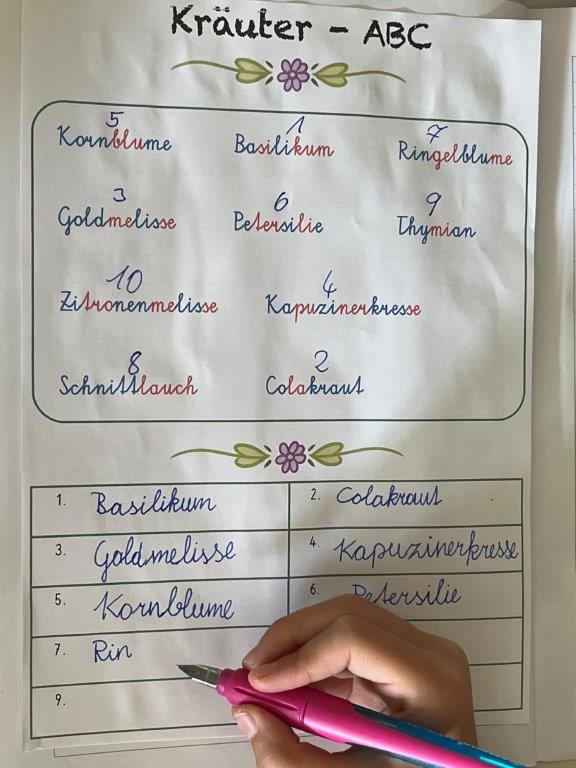 Kräuter - ABC
5 1 7
Kornblume Basilikum Ringelblume
3 6 9
Goldmelisse Petersilie Thymian
10 4
Zitronenmelisse Kapuzinerkresse
8 2
Schnittlauch Colakraut
1. Basilikum 2. Colakraut
3. Goldmelisse 4. Kapuzinerkresse
5. Kornblume 6. Petersilie
7. Rin
9.